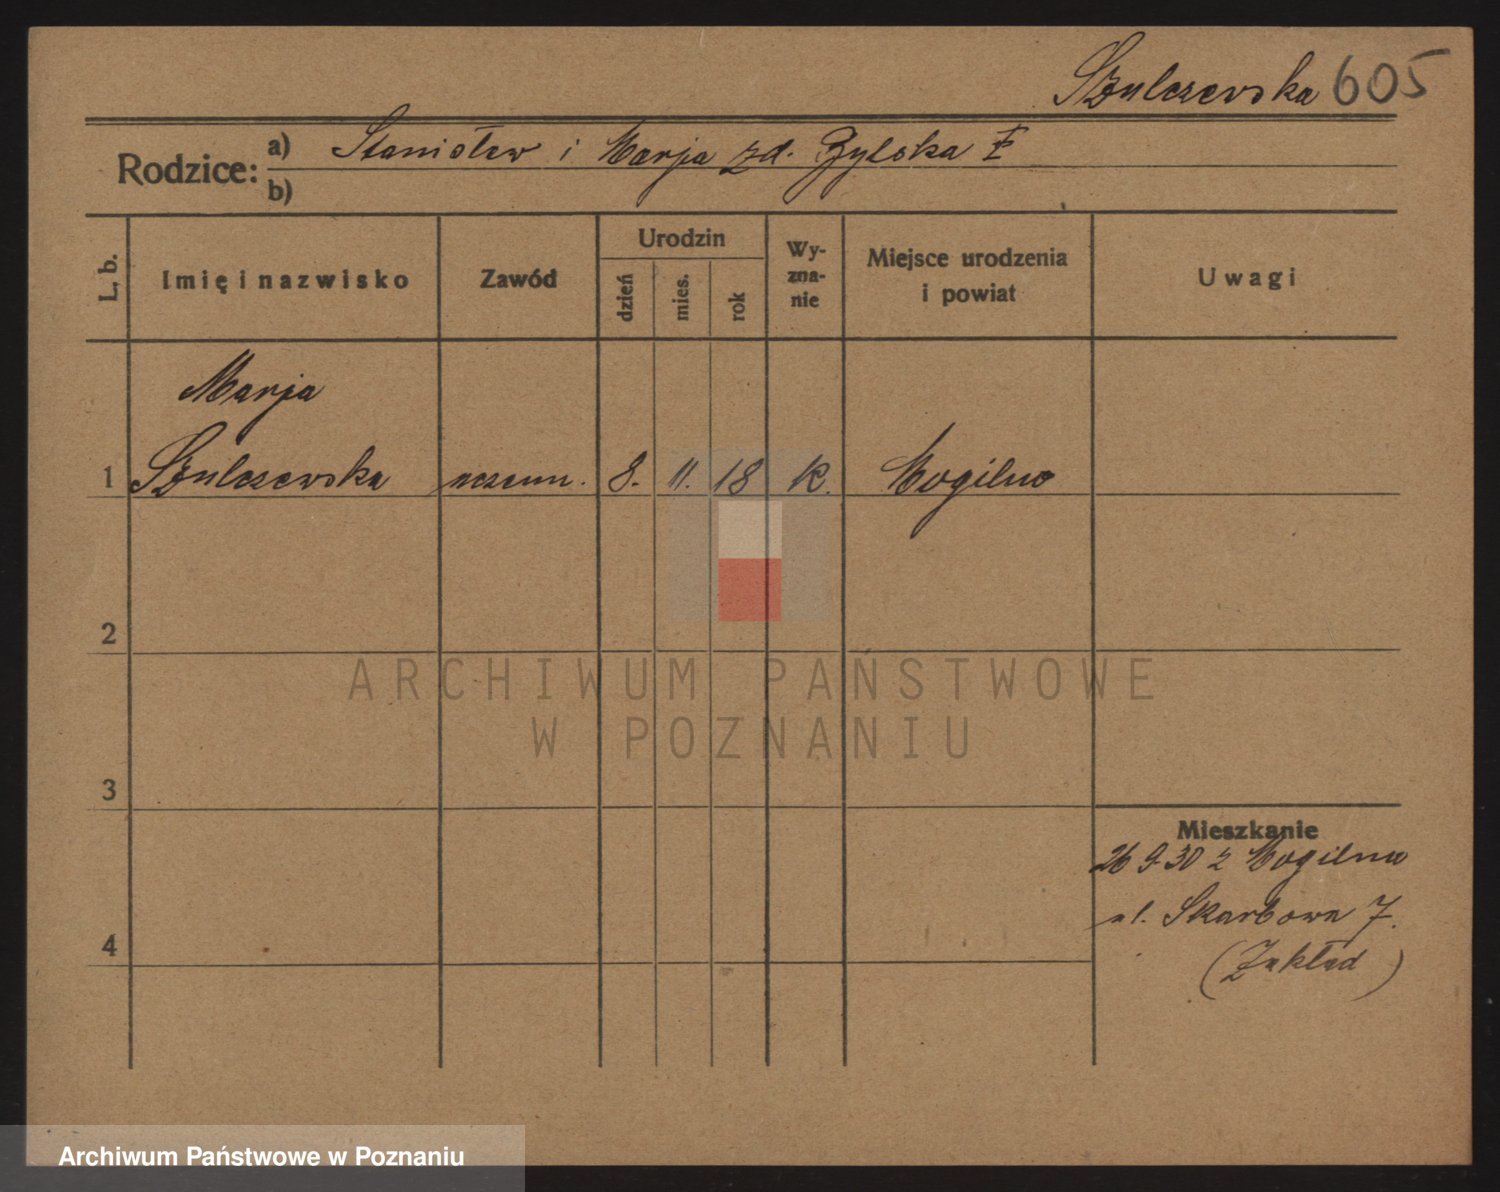 Szulczewska 605
Rodzice: a) Stanisław i Marja zd. Zylska
b)
L. b. Imię i nazwisko Zawód Urodzin dzień mies. rok Wyznanie Miejsce urodzenia i powiat Uwagi
Marja
1 Szulczewska uczenn. 8. 11. 18 k. Mogilno
2
3
4
Mieszkanie
26 9.30 z Mogilna
ul. Skarbowa 7.
(Zakład)
ARCHIWUM PAŃSTWOWE
W POZNANIU
Archiwum Państwowe w Poznaniu